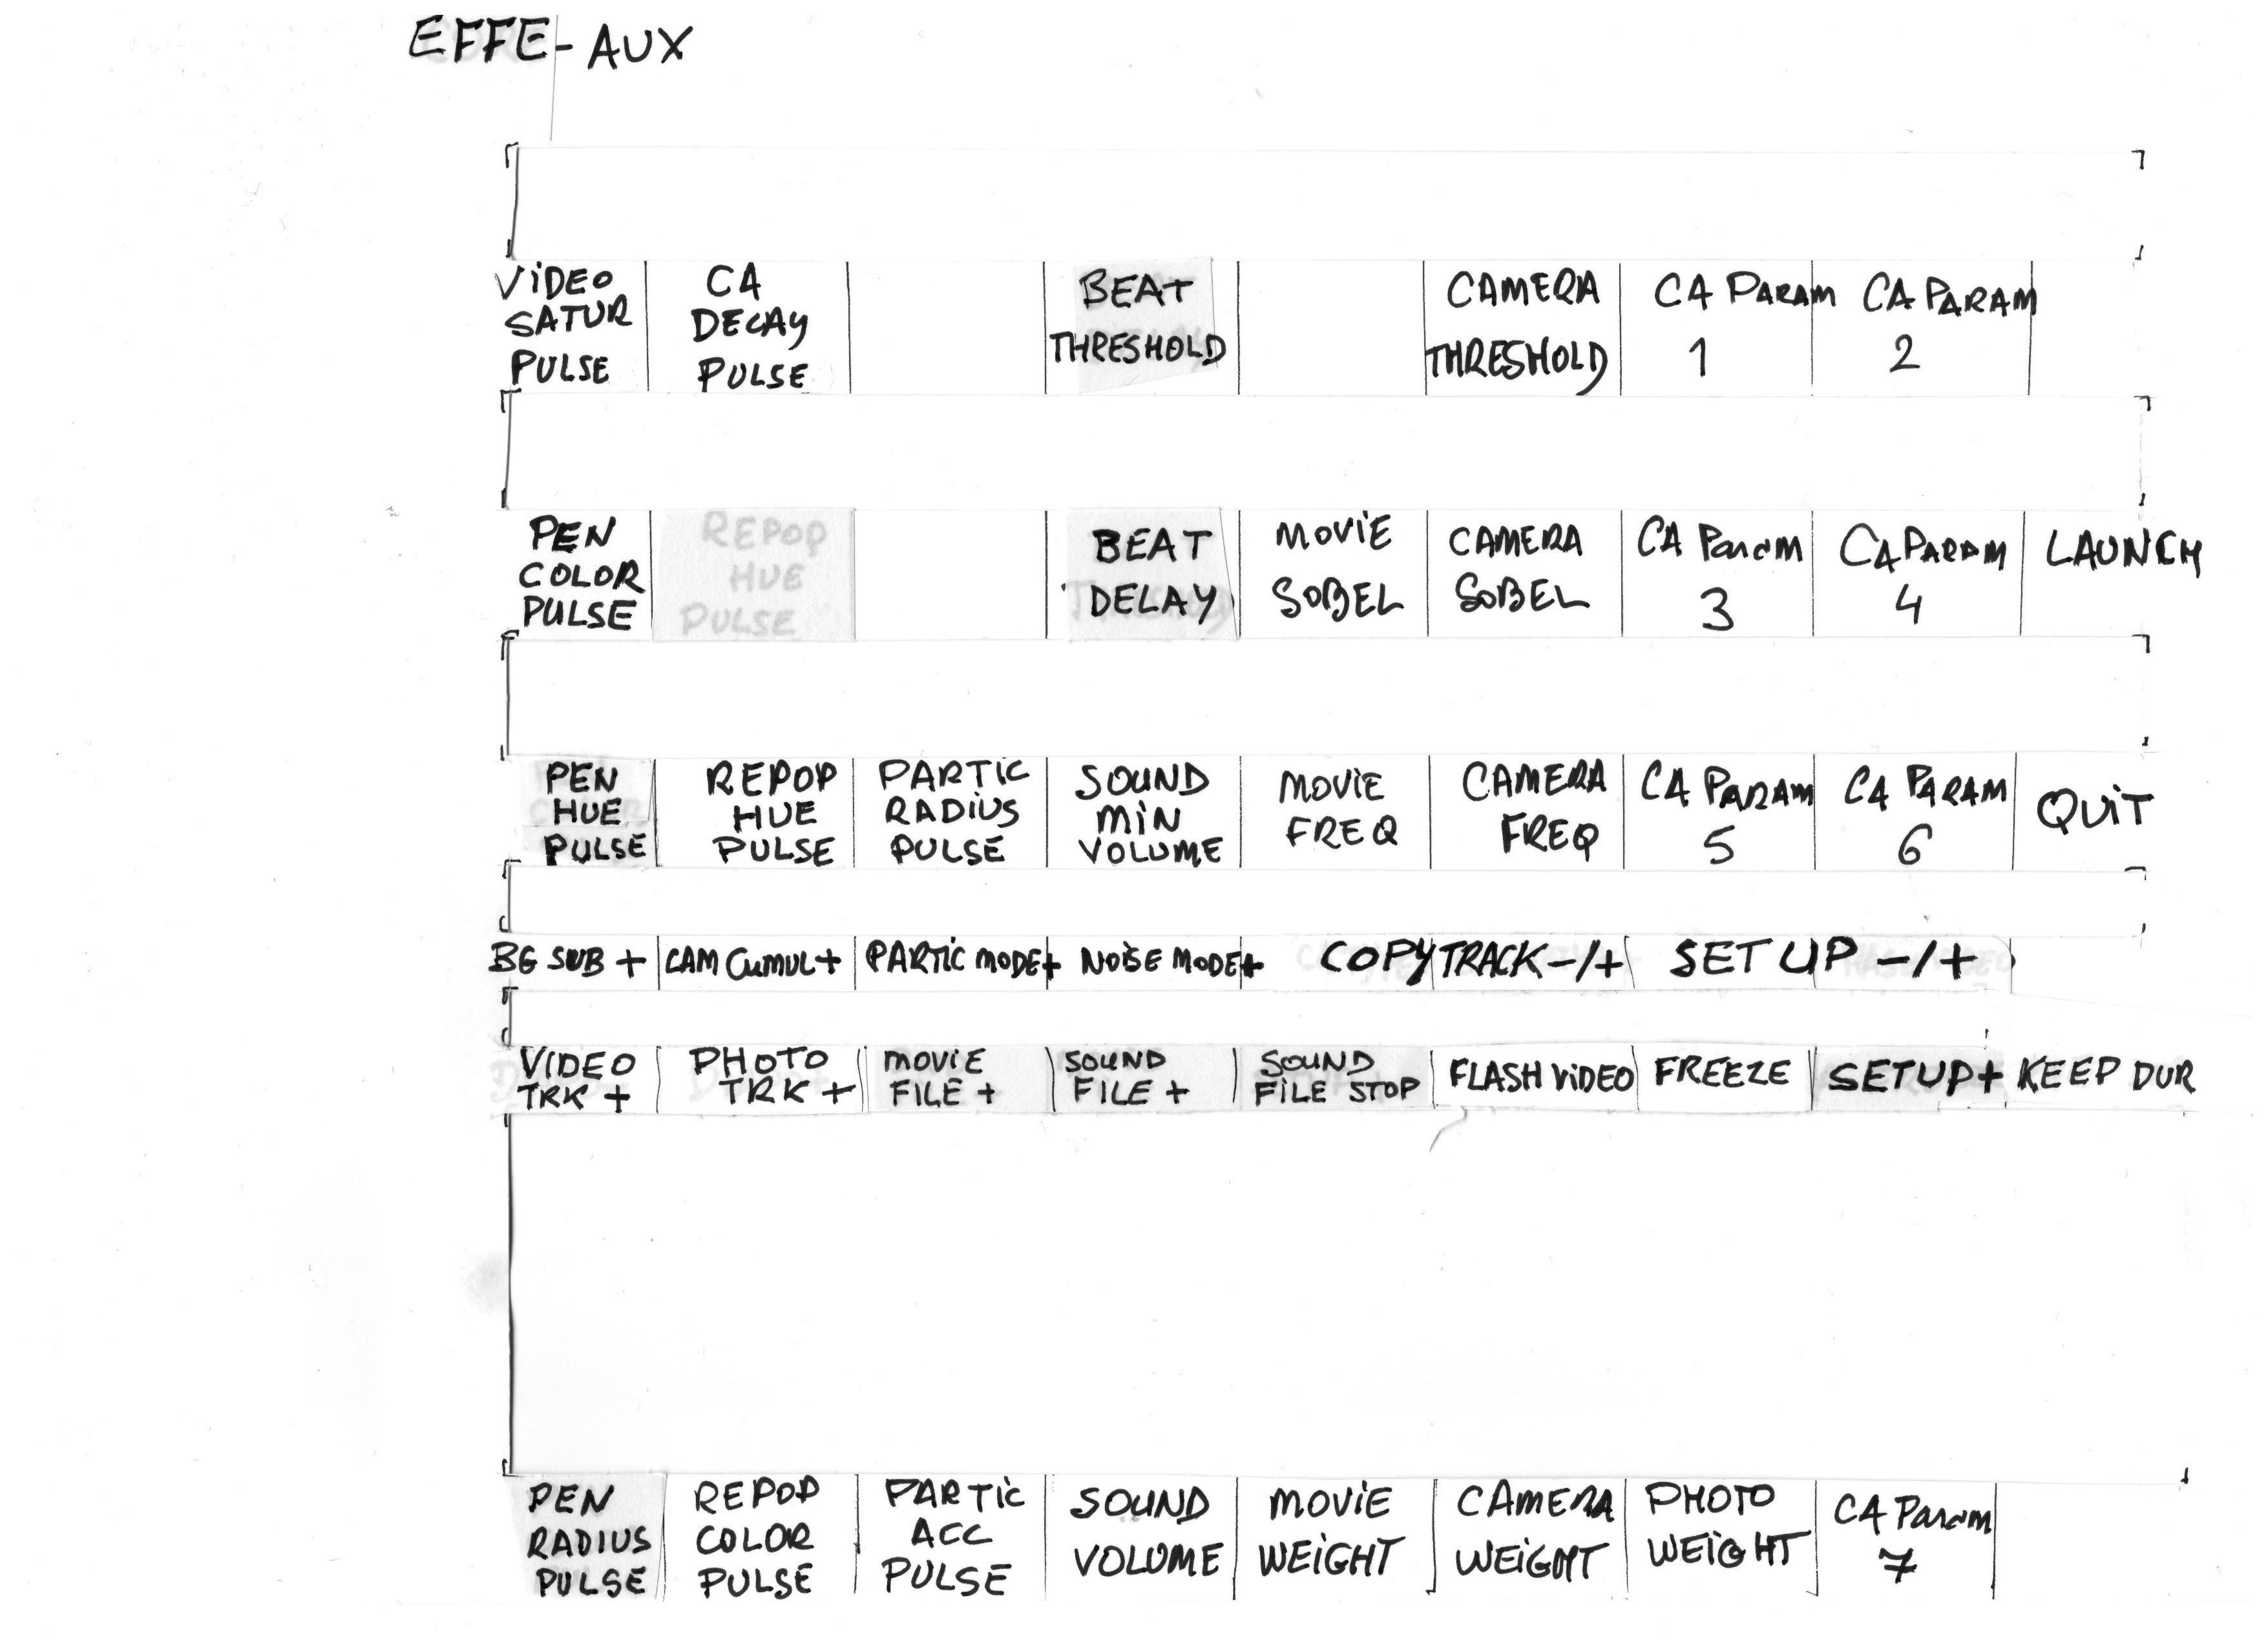 EFFE-AUX
VIDEO SATUR PULSE
CA DECAY PULSE
BEAT THRESHOLD
CAMERA THRESHOLD
CA PARAM 1
CA PARAM 2
PEN COLOR PULSE
REPOP HUE PULSE
BEAT DELAY
MOVIE SOBEL
CAMERA SOBEL
CA Param 3
CA PARAM 4
LAUNCH
PEN HUE PULSE
REPOP HUE PULSE
PARTIC RADIUS PULSE
SOUND MIN VOLUME
MOVIE FREQ
CAMERA FREQ
CA PARAM 5
CA PARAM 6
QUIT
BG SUB +
CAM CUMUL +
PARTIC MODE+
NOISE MODE+
COPY TRACK -/+
SETUP -/+
VIDEO TRK +
PHOTO TRK +
MOVIE FILE +
SOUND FILE +
SOUND FILE STOP
FLASH VIDEO
FREEZE
SETUP+
KEEP DUR
PEN RADIUS PULSE
REPOP COLOR PULSE
PARTIC ACC PULSE
SOUND VOLUME
MOVIE WEIGHT
CAMERA WEIGHT
PHOTO WEIGHT
CA Param 7